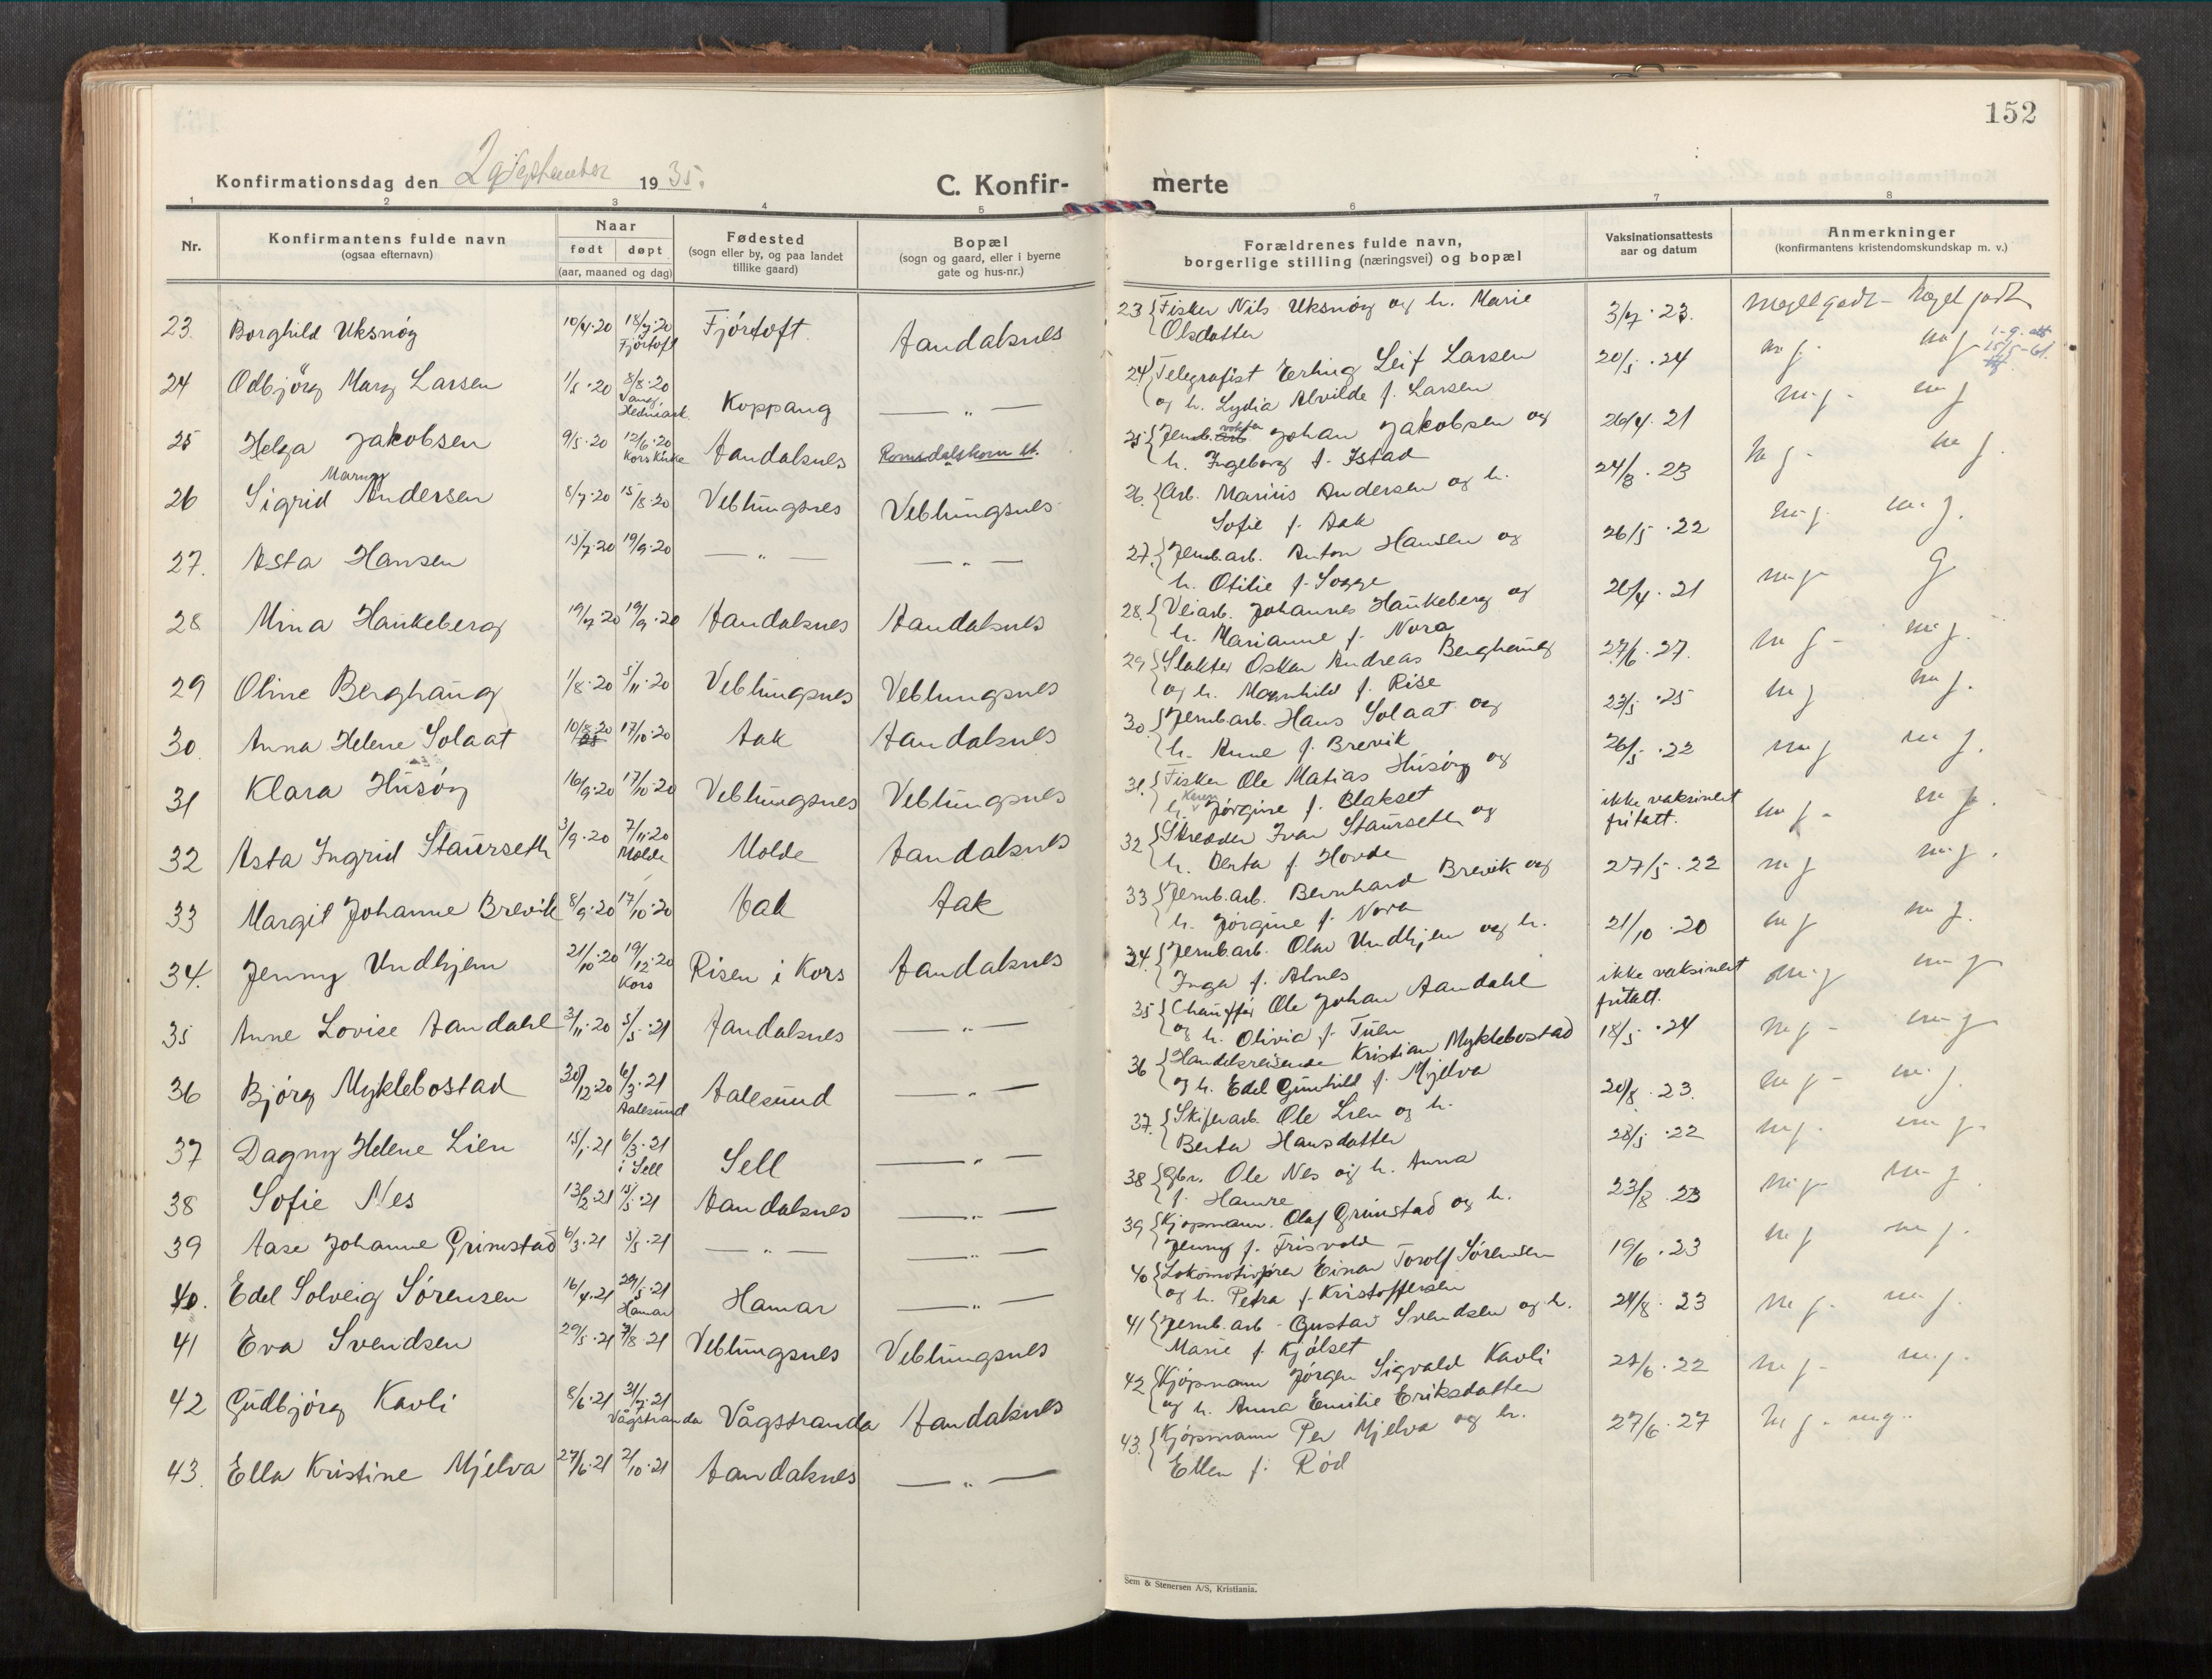 152
Konfirmationsdag den 29 September 1935.
C. Konfir- merte
1 2 3 4 5 6 7 8
Nr.
Konfirmantens fulde navn
(ogsaa efternavn)
Naar
født døpt
(aar, maaned og dag)
Fødested
(sogn eller by, og paa landet
tillike gaard)
Bopæl
(sogn og gaard, eller i byerne
gate og hus-nr.)
Forældrenes fulde navn,
borgerlige stilling (næringsvei) og bopæl
Vaksinationsattests
aar og datum
Anmerkninger
(konfirmantens kristendomskundskap m. v.)
23. Borghild Uksnøy 10/4·20 18/7·20 Fjørtoft Fjörtoft Aandalsnes
23 Fisker Nils Uksnøy og h. Marie
Olsdatter 3/7·23. meget godt - meget godt
24 Odbjörg Mary Larsen 1/5·20 8/8·20 Hedmark Koppang — „ —
24 Telegrafist Erling Leif Larsen
og h. Lydia Alvilde f. Larsen 20/5·24 m g - m g
25 Helga Jakobsen 9/5·20 12/6·20 Kors Kirke Aandalsnes Romsdalshorn st.
25 Jernb. vokter Johan Jakobsen og
h. Ingeborg f. Istad 26/4·21 m g - m g
26 Sigrid Marny Andersen 8/7·20 15/8·20 Veblungsnes Veblungsnes
26. Arb. Marius Andersen og h.
Sofie f. Aak 24/8·23 m g - m g.
27. Asta Hansen 15/7·20 19/9·20 — „ — — „ —
27. Jernb.arb. Anton Hansen og
h. Otilie f. Sogge 26/5·22 m g m g.
28 Mina Haukeberg 19/7·20 19/9·20 Aandalsnes Aandalsnes
28. Veiarb. Johannes Haukeberg og
h. Marianne f. Nora 26/4·21 m g G
29 Oline Berghaug 1/8·20 5/11·20 Veblungsnes Veblungsnes
29 Slakter Oskar Andreas Berghaug
og h. Magnhild f. Rise 27/6·27. m g - m g.
30. Anna Helene Solaat 10/8·20 17/10·20 Aak Aandalsnes
30. Jernb.arb. Hans Solaat og
h. Anne f. Brevik 23/5·25 m g m g.
31 Klara Husøy 16/9·20 17/10·20 Veblungsnes Veblungsnes
31. Fisker Ole Matias Husøy og
h. Karen Jørgine f. Blakset 26/5·22 m g m g.
32 Asta Ingrid Staurseth 3/9·20 7/11·20 Molde Molde Aandalsnes
32 Skredder Ivar Staurseth og
h. Berta f. Hovde ikke vaksinert
fritatt. m g - m g.
33 Margit Johanne Brevik 8/9·20 17/10·20 Aak Aak
33 Jernb.arb. Bernhard Brevik og
h. Jørgine f. Nora 27/5·22 m g m g.
34. Jenny Undhjem 21/10·20 19/12·20 Kors Risen i Kors Aandalsnes
34. Jernb.arb. Olav Undhjem og h.
Inga f. Alnes 21/10·20 m g m g.
35 Anne Lovise Aandahl 3/11·20 5/5·21 Aandalsnes — „ —
35 Chauffør Ole Johan Aandahl
og h. Olivia f. Tuen ikke vaksinert
fritatt. m g m g
36 Bjørg Myklebostad 30/12·20 6/3·21 Aalesund Aalesund — „ —
36 Handelsreisende Kristian Myklebostad
og h. Edel Gunhild f. Mjelva 18/5·24 m g - m g
37 Dagny Helene Lien 15/1·21 6/3·21 i Sell Sell — „ —
37. Skiferarb. Ole Lien og h.
Berta Hansdatter 20/8·23. m g - m g.
38 Sofie Nes 13/2·21 15/5·21 Aandalsnes — „ —
38 Gbr. Ole Nes og h. Anna
f. Hamre 28/5·22 m g. m g.
39 Aase Johanne Grimstad 6/3·21 5/5·21 — „ — — „ —
39 Kjøpmann. Olaf Grimstad og h.
Jenny f. Frisvold 23/8·23 m g m g.
40. Edel Solveig Sørensen 16/4·21 29/5·21 Hamar Hamar — „ —
40 Lokomotivfører Einar Torolf Sørensen
og h. Petra f. Kristoffersen 19/6·23 m g m g.
41 Eva Svendsen 29/5·21 7/8·21 Veblungsnes Veblungsnes
41 Jernb.arb - Gustav Svendsen og h.
Marie f. Kjølset 24/8·23 m g - m g.
42 Gudbjørg Kavli 8/6·21 31/7·21 Vågstranda Vågstranda Aandalsnes
42 Kjøpmann Jørgen Sigvald Kavli
og h. Anna Emilie Eriksdatter 27/6·22 m g - m g.
43. Ella Kristine Mjelva 27/6·21 2/10·21 Aandalsnes — „ —
43. Kjøpmann Per Mjelva og h.
Ellen f. Rød 27/6·27 m g - m g.
Sem & Stenersen A/S, Kristiania.